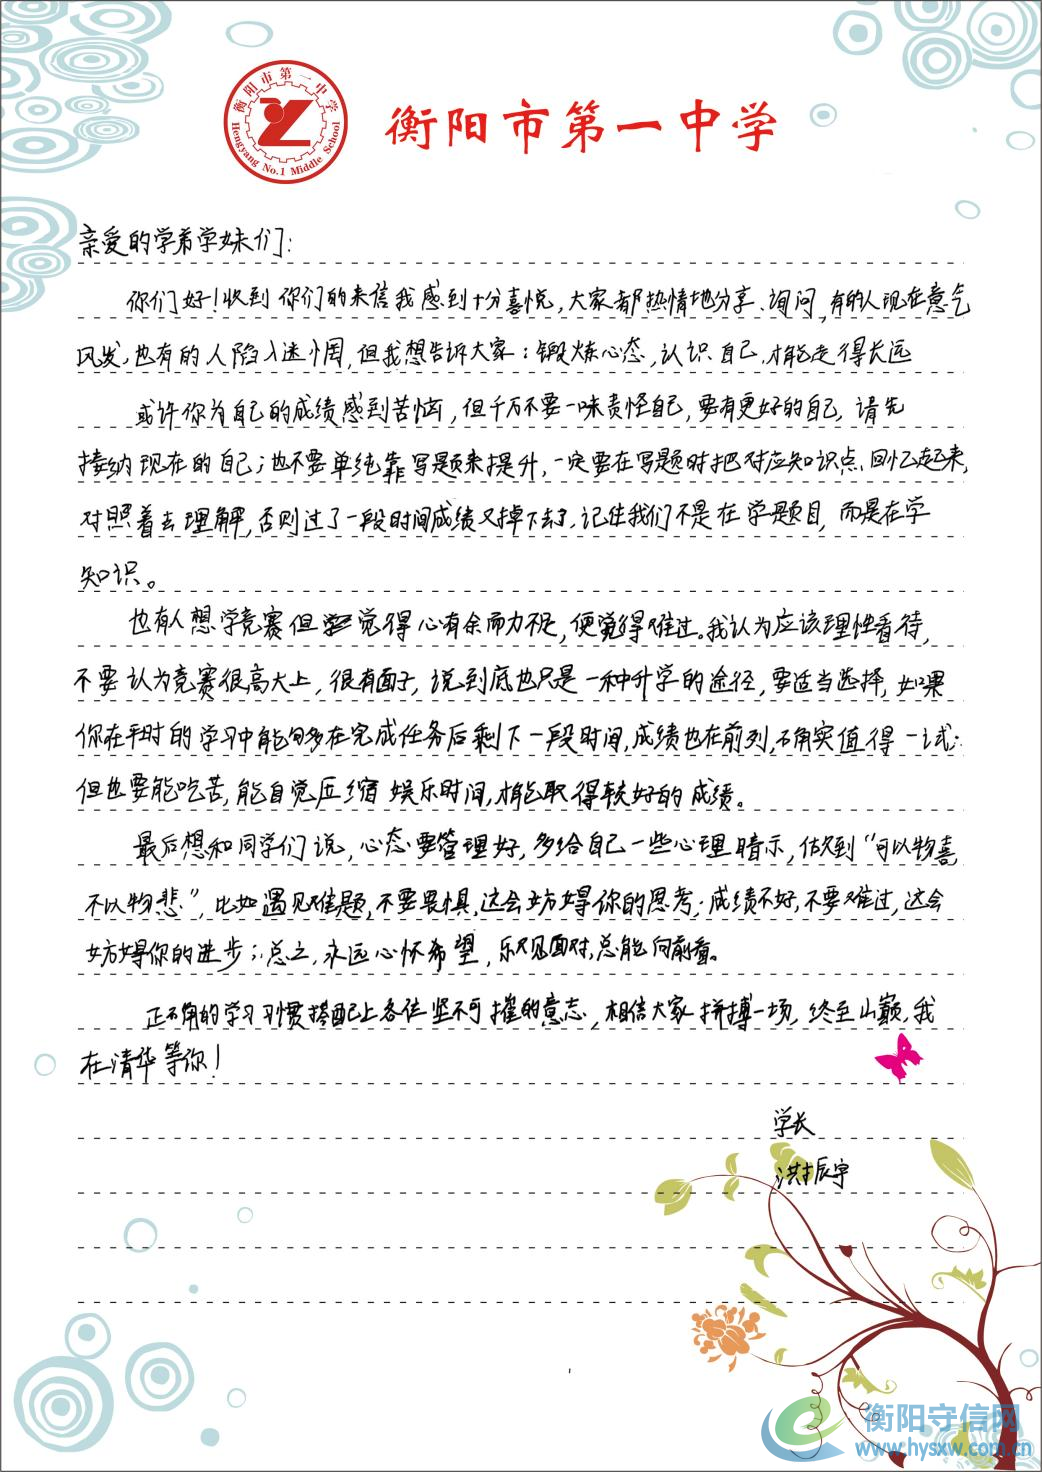 衡阳市第一中学
Hengyang No.1 Middle School
衡阳市第一中学
亲爱的学弟学妹们:
你们好!收到你们的来信我感到十分喜悦,大家都热情地分享、询问,有的人现在意气
风发,也有的人陷入迷惘,但我想告诉大家:锻炼心态,认识自己,才能走得长远
或许你为自己的成绩感到苦恼,但千万不要一味责怪自己,要有更好的自己,请先
接纳现在的自己;也不要单纯靠写题来提升,一定要在写题时把对应知识点回忆起来,
对照着去理解,否则过了一段时间成绩又掉下去了,记住我们不是在学题目,而是在学
知识。
也有人想学竞赛但觉得心有余而力不足,便觉得难过。我认为应该理性看待,
不要认为竞赛很高大上,很有面子,说到底也只是一种升学的途径,要适当选择,如果
你在平时的学习中能够多在完成任务后剩下一段时间,成绩也在前列,确实值得一试;
但也要能吃苦,能自觉压缩娱乐时间,才能取得较好的成绩。
最后想和同学们说,心态要管理好,多给自己一些心理暗示,做到“可以物喜,
不以物悲”,比如遇见难题,不要畏惧,这会妨碍你的思考;成绩不好,不要难过,这会
妨碍你的进步;总之,永远心怀希望,乐观面对,总能向前看。
正确的学习习惯搭配上各位坚不可摧的意志,相信大家拼搏一场,终至山巅,我
在清华等你!
学长
洪振宇
衡阳守信网
www.hysxw.com.cn